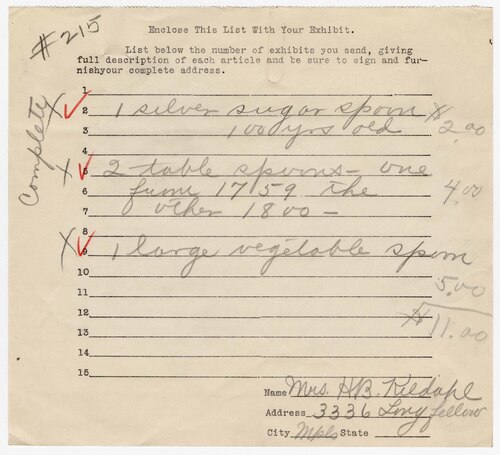 #215
Enclose This List With Your Exhibit.
List below the number of exhibits you send, giving
full description of each article and be sure to sign and fur-
nishyour complete address.
Complete
1
2 1 silver sugar spoon $2.00
3 100 yrs old
4
5 2 table spoons - one
6 from 1759 the 4.00
7 other 1800 -
8
9 1 large vegetable spoon
10 5.00
11
12 $11.00
13
14
15
Name Mrs. H.B. Kildahl
Address 3336 Longfellow
City Mpls State